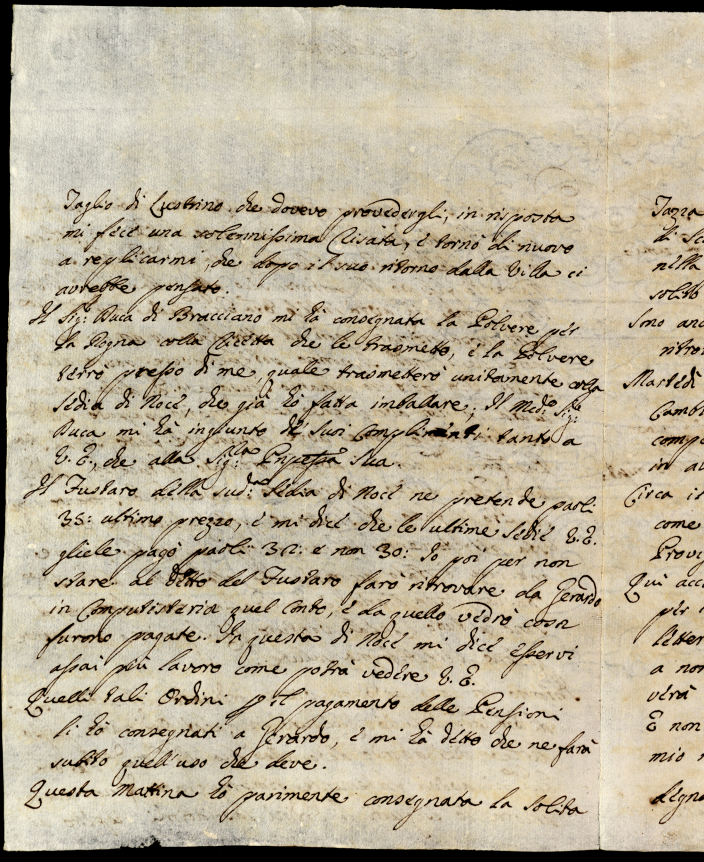 Taglio di Lustrino che dovevo provedergli, in risposta
mi fece una solennissima Risata, è tornò di nuovo
a replicarmi, che dopo il suo ritorno dalla Villa ci
avrebbe pensato.
Il Sig.r Duca di Bracciano mi hà consegnata la Polvere per
la Rogna colla Ricetta che le trasmetto, è la Polvere
terrò presso di me, quale trasmetterò unitamente colla
Sedia di Noce, che già hò fatta imballare; Il Med.o Sig.re
Duca mi hà ingiunto de suoi Complimenti tanto a
V. E., che alla Sig.ra Pnpessa Sua.
Il Fustaro della sud.a Sedia di Noce ne pretende paoli
35: ultimo prezzo, è mi dice che le ultime Sedie V. E.
gliele pagò paoli 32: e non 30: Io poi per non
stare al detto del Fustaro farò ritrovare da Gerardo
in Computisteria quel Conto, è da quello vedrò cosa
furono pagate. In questa di Noce mi dice esservi
assai più lavoro come potrà vedere V. E.
Quelli tali Ordini p il pagamento delle Pensioni
li hò consegnati a Gerardo, è mi hà detto che ne farà
subito quell'uso che deve.
Questa Mattina hò parimente consegnata la solita
Tazza
di
nella
solito
Sono
Martedì
in
Circa
come
Qui
per
a non
verà
E non
mio